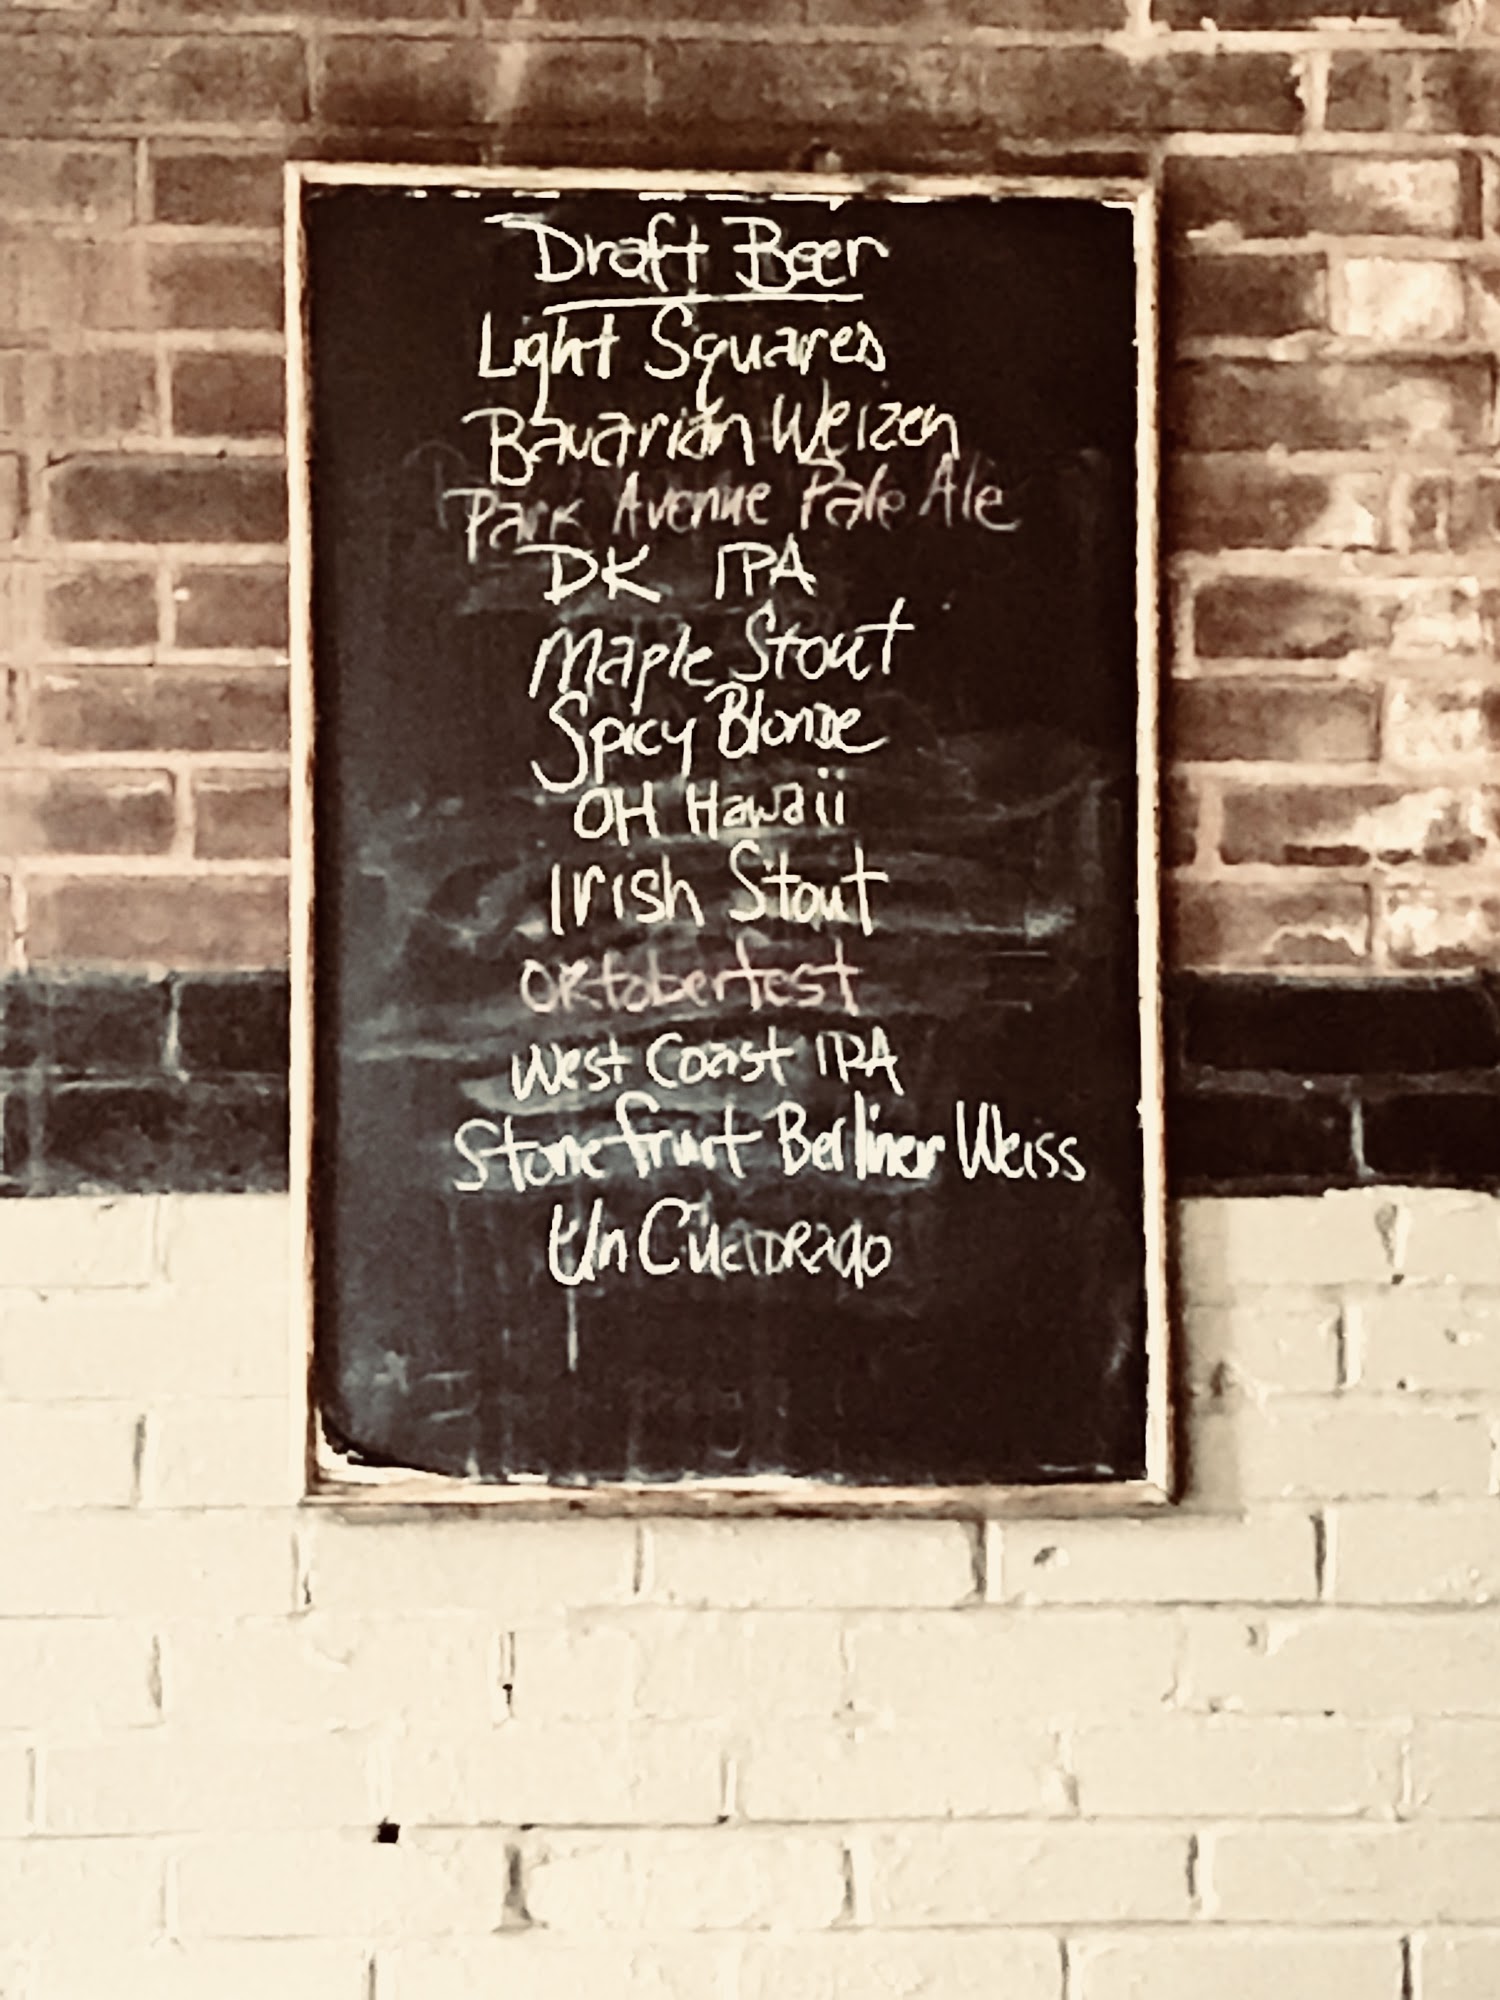 Draft Beer
Light Squares
Bavarian Weizen
Park Avenue Pale Ale
DK IPA
Maple Stout
Spicy Blonde
OH Hawaii
Irish Stout
Oktoberfest
West Coast IPA
Stonefruit Berliner Weiss
Un Cuadrado